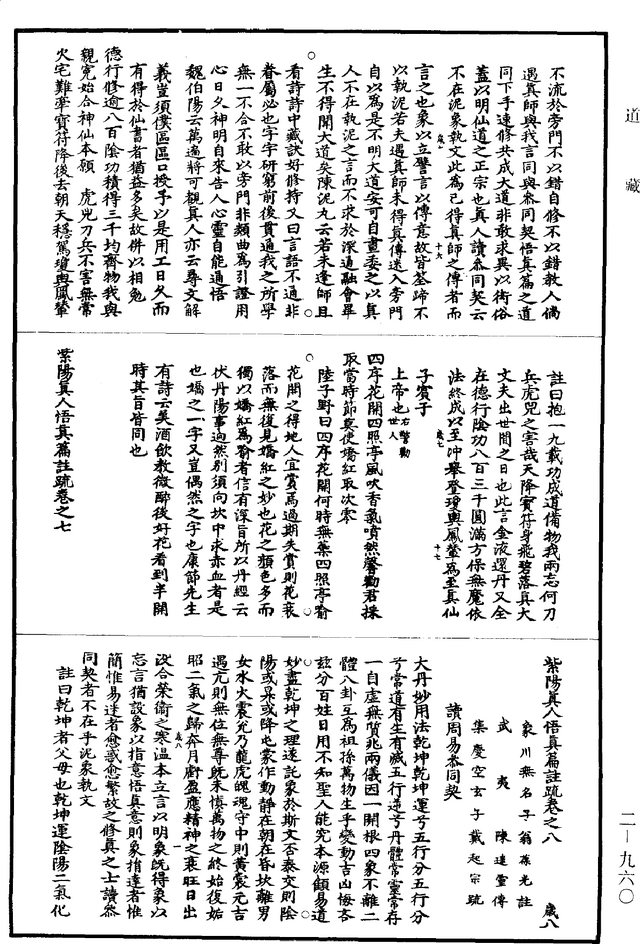 道藏
不流於旁門不以錯自修不以錯教人倘
遇真師與我言同與叅同契悟真篇之道
同下手速修共成大道非敢求異以衒俗
蓋以明仙道之正宗也真人讀叅同契云
不在泥象執文此為已得真師之傳者而
言之也象以立譬言以傳意故皆筌蹄不
以執泥若夫遇真師未得真傳迷入旁門
自以為是不明大道安可自畫委之以真
人不在執泥之言而不求於深通融會畢
生不得聞大道矣陳泥丸云若未逢師且
看詩詩中藏訣好修持又曰言語不通非
眷屬必也字字研窮前後貫通我之所學
無一不合不敢以旁門非類曲為引證用
心日久神明自來告人心靈自能通悟
魏伯陽云萬遍將可覩真人亦云尋文解
義豈須僕區區口授予以是用工日久而
有得於仙書者猶益多矣故併以相勉
德行修逾八百陰功積得三千均齊物我與
親冤始合神仙本願 虎兕刀兵不害無常
火宅難牽寶符降後去朝天穩駕瓊輿鳳輦
註曰抱一九載功成道備物我兩忘何刀
兵虎兕之害哉天降寶符身飛碧落真大
丈夫出世間之日也此言金液還丹又全
在德行陰功八百三千圓滿方保無魔依
法終成以至沖舉登瓊輿鳳輦為至真仙
子賓于
上帝也右警勸世人
四序花開四照亭風吹香氣噴然馨勸君採
取當時節莫使嬌紅取次零
陸子野曰四序花開何時無藥四照亭喻
花開之得地人宜賞焉過期失賞則花衰
落而無復見嬌紅之妙也花之顏色多而
獨以嬌紅為喻者信有深旨所以丹經云
伏丹陽事迥然別須向坎中求赤血者是
也嬌之一字又豈偶然之字也康節先生
有詩云美酒飲教微醉後好花看到半開
時其旨皆同也
紫陽真人悟真篇註疏卷之七
紫陽真人悟真篇註疏卷之八 歲八
象川無名子翁葆光註
武夷陳達靈傳
集慶空玄子戴起宗疏
讀周易叅同契
大丹妙用法乾坤乾坤運兮五行分五行分
兮常道有生有滅五行逆兮丹體常靈常存
一自虛無質兆兩儀因一開根四象不離二
體八卦互為祖孫萬物生乎變動吉凶悔吝
茲分百姓日用不知聖人能究本源顧易道
妙盡乾坤之理遂託象於斯文否泰交則陰
陽或升或降屯蒙作動靜在朝在昏坎離男
女水火震兊乃龍虎魄魂守中則黃裳元吉
遇亢則無位無尊既未慎萬物之終始復姤
昭二氣之歸奔月虧盈應精神之衰旺日出
沒合榮衛之寒溫本立言以明象既得象以
忘言猶設象以指意悟真意則象捐達者惟
簡惟易迷者愈惑愈繁故之修真之士讀叅
同契者不在乎泥象執文
註曰乾坤者父母也乾坤運陰陽二氣化
二-九六〇